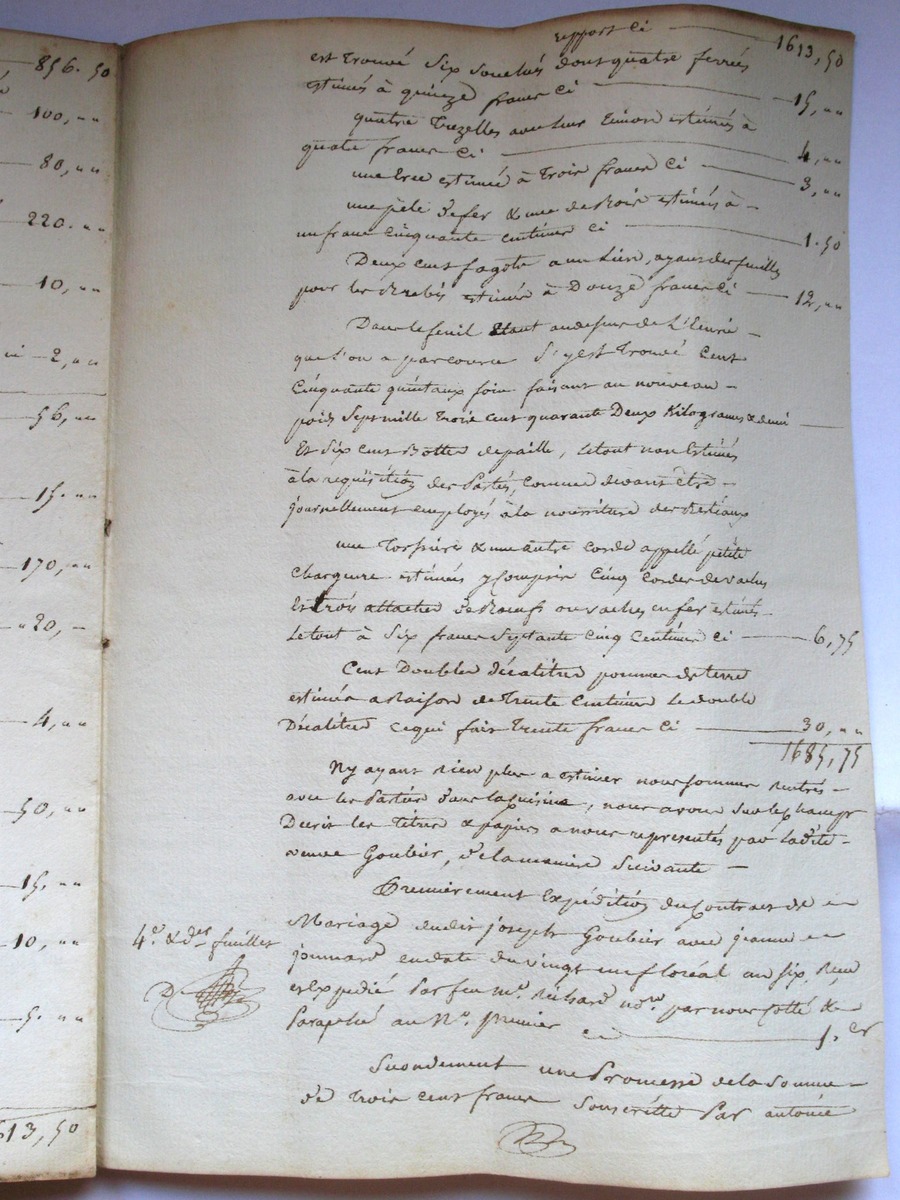 856.50
100, ""
80, ""
220. ""
10, ""
2, ""
56, ""
15. ""
170, ""
20, -
4, ""
50, ""
15. ""
10, ""
5. ""
613,50
report Ci 1613,50
est trouvé Six dont quatre ferrés
estimés à quinze francs Ci 15, ""
quatre avec leur estimés à
quatre francs Ci 4, ""
une estimée à trois francs Ci 3, ""
une pèle de fer & une de Bois estimés à
un franc Cinquante centimes Ci 1.50
Deux cens fagots a un Lien, ayant des feuilles
pour les Brebis estimés à Douze francs Ci 12, ""
Dans le fenil Etant au dessus de L'Ecurie
que l'on a parcouru S'y est trouvé Cent
Cinquante quintaux foin faisant au nouveau
poids Sept mille trois cent quarante Deux Kilograms & demi
Et Six cens Bottes de paille, le tout non Estimés
à la requisition des Parties, comme devant être
journellement employés à la nourriture des Bestiaux
une & une autre corde appellé petite
chargeure estimés y Compris Cinq Cordes de vaches
Et trois attaches de Boeufs ou vaches en fer estimés
Le tout à Six francs Septante Cinq Centimes Ci 6,75
Cent Doubles Décalitres pommes de terre
estimés a Raison de Trente Centimes Le double
Décalitres ce qui fait Trente francs Ci 30, ""
1685,75
N'y ayant Rien plus a estimer nous sommes rentrés
avec les Parties dans la cuisine, nous avons Sur le champ
Décrit les titres & papiers a nous représentés par Ladite
veuve Goubier, de la maniere Suivante
Premièrement Expédition du Contract de
Mariage dudit joseph Goubier avec jeanne
jonnard en date du vingt un floréal an six, Reçu
et Expédié Par feu Me. Richard nore. par nous Cotté &
Paraphé au No. premier 1.er
4e. & der. feuillet
Secondement une Promesse de la Somme
de trois cens francs Souscritte Par antoine